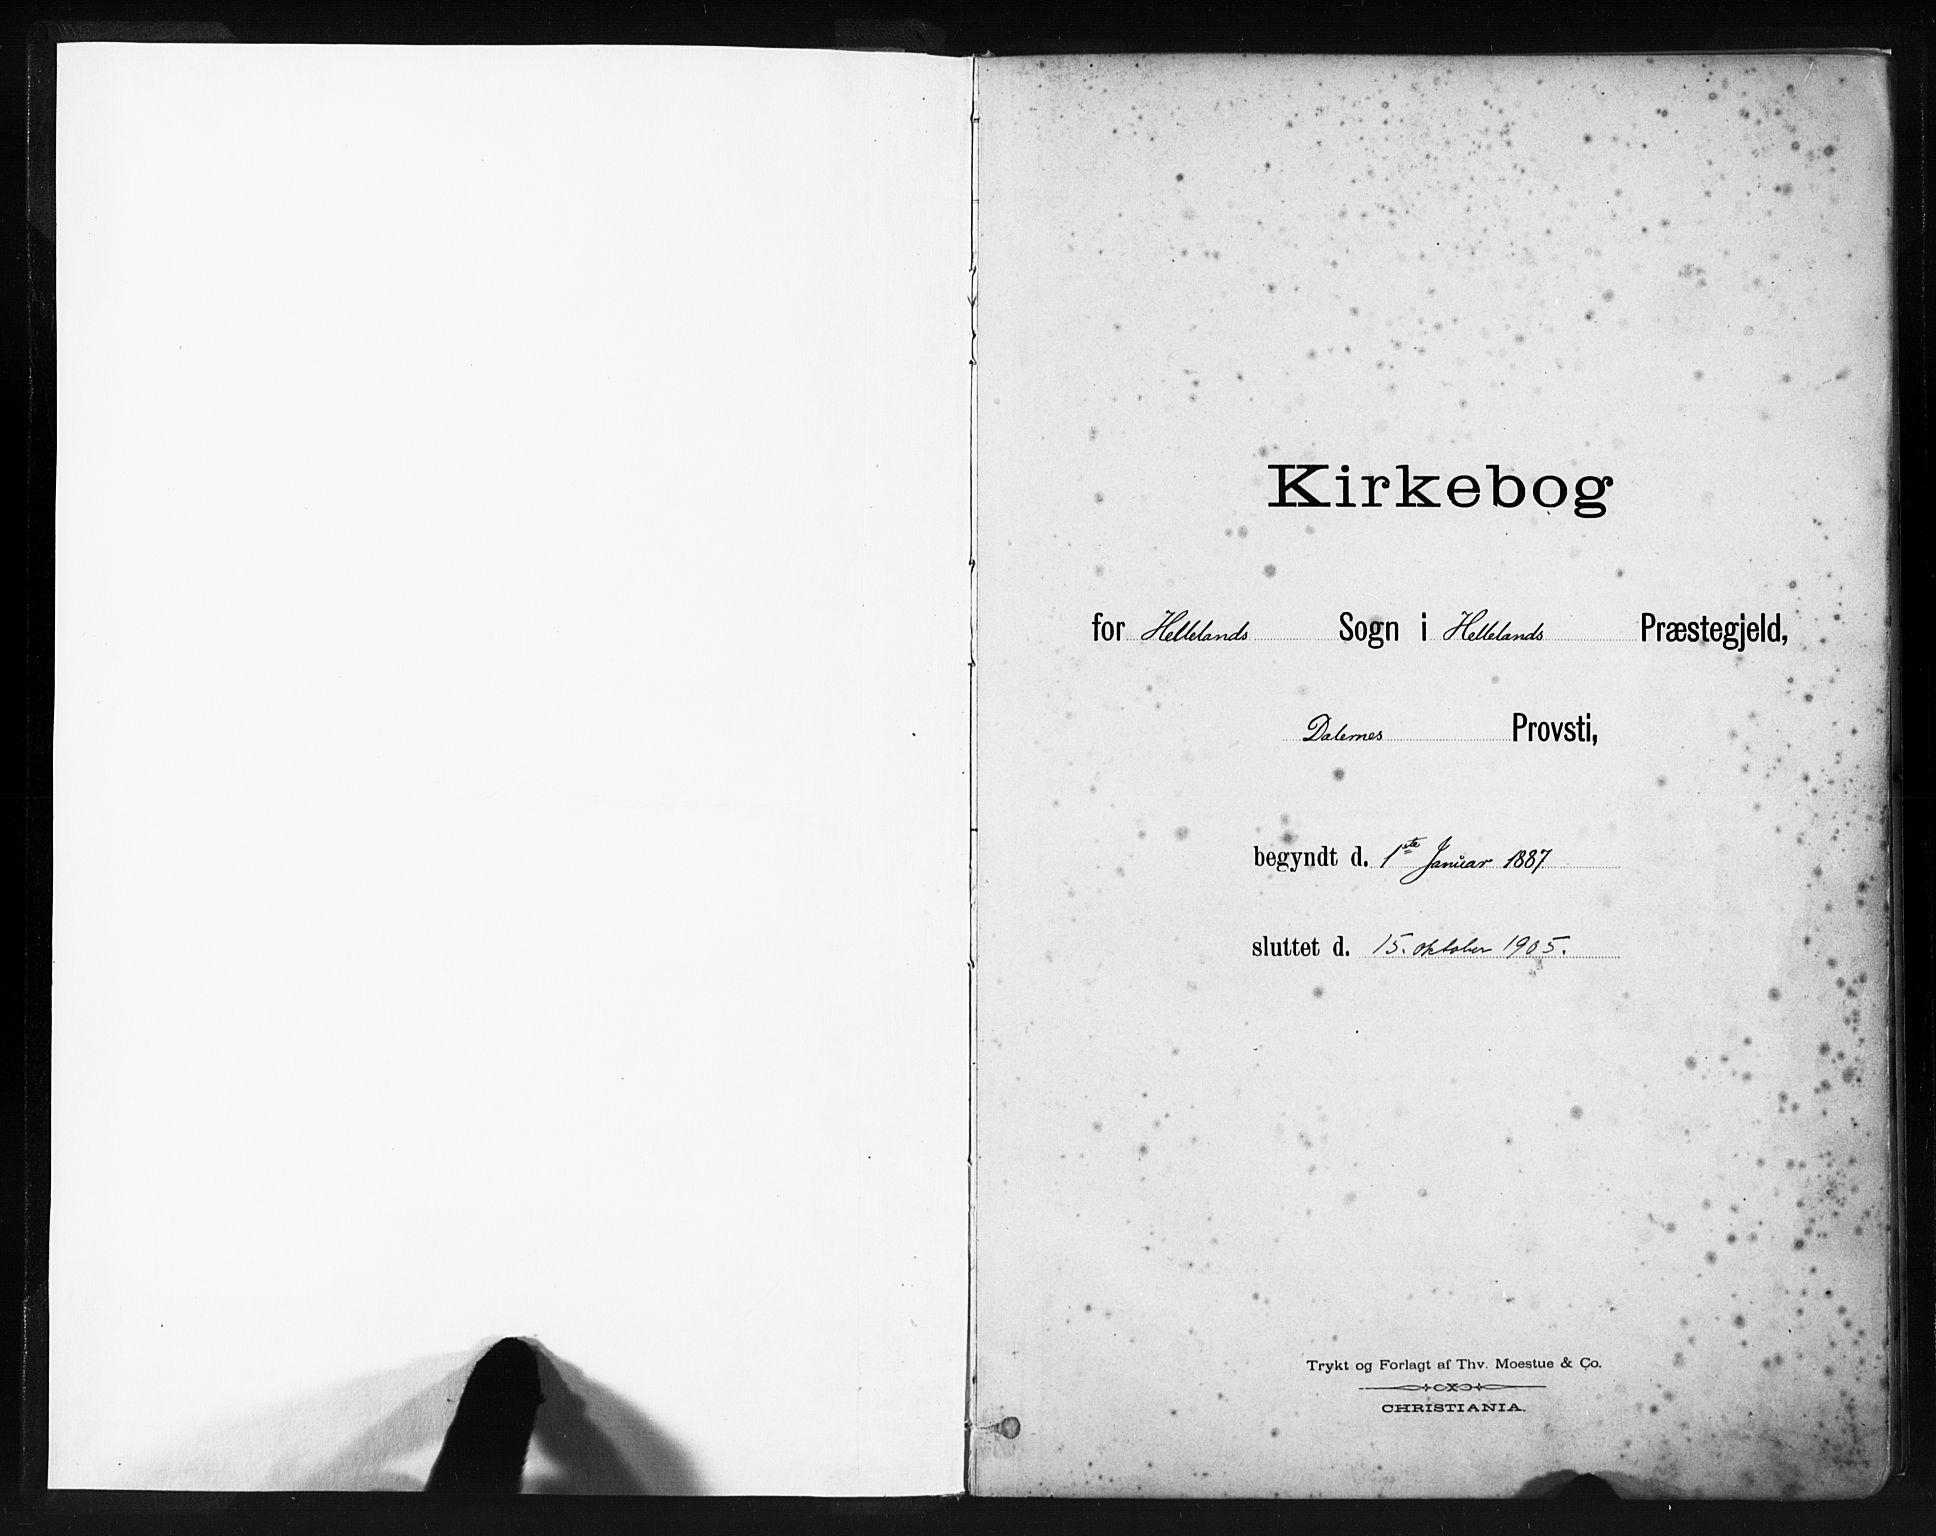 Kirkebog
for Hellelands Sogn i Hellelands Præstegjeld,
Dalernes Provsti,
begyndt d. 1ste Januar 1887
sluttet d. 15. oktober 1905.
Trykt og Forlagt af Thv. Moestue & Co.
CHRISTIANIA.